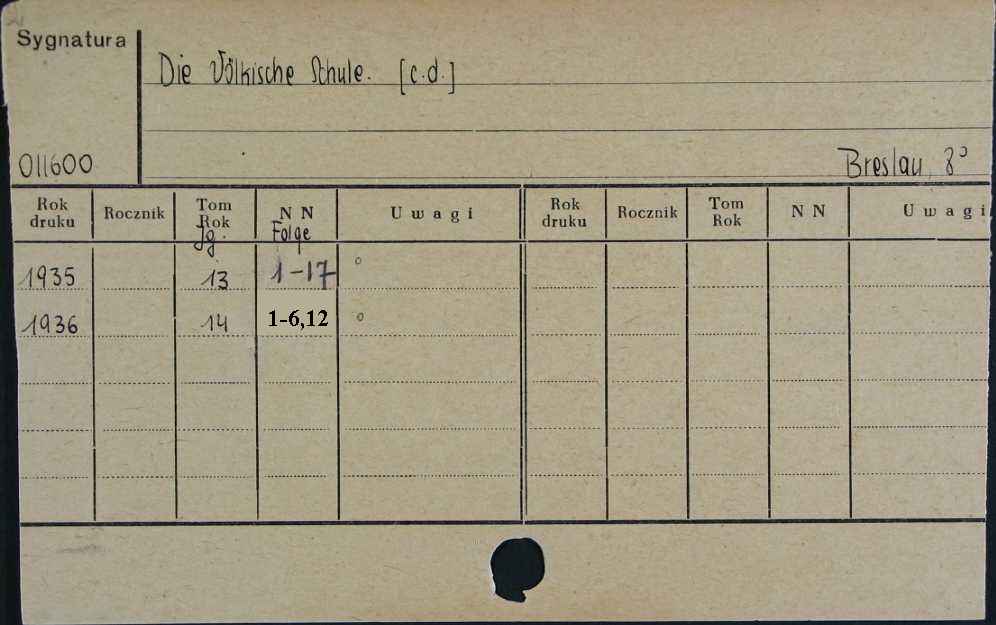 Sygnatura
Die Völkische Schule. [c.d.]
011600
Breslau, 8°
Rok druku Rocznik Tom Rok N N Uwagi Rok druku Rocznik Tom Rok N N Uwagi
Jg. Folge
1935 13 1-17 °
1936 14 1-6,12 °